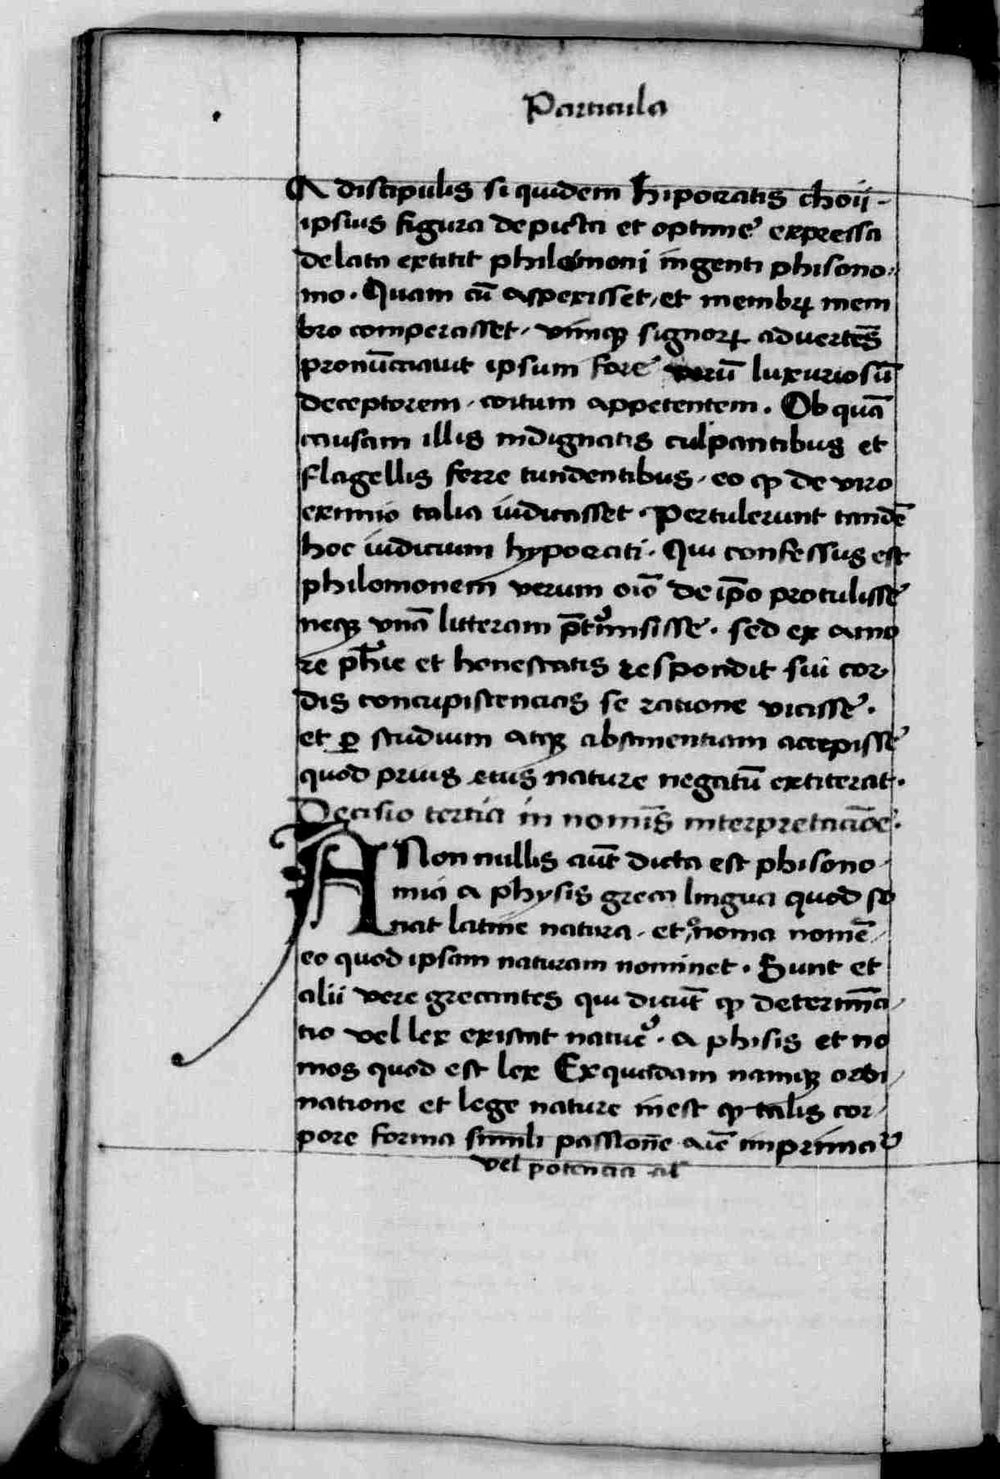 Particula
A discipulis si quidem hiporatis choii-
ipsius figura depicta et optime expressa
delata extitit philomoni ingenti phisono:
mo. Quam cū asperisset, et membrꝝ mem
bro comperasset, vimqꝫ signorꝝ advertēs
pronūctiavit ipsum fore verū luxuriosū
deceptorem, coitum appetentem. Ob quā
causam illis indignatis culpantibus et
flagellis ferre tundentibus, eo ꝙ de viro
eximio talia iudicasset. Pertulerunt tandē
hoc iudicium hyporati. Qui confessus est
philomonem verum oīo de ip̄o protulisse
neqꝫ vnā litteram p̄termisisse. sed ex amo
re ph̄ie et honestatis respondit sui cor
dis concupiscencias se ratione vicisse.
et ꝑ studium atqꝫ abstinentiam accepisse
quod prius eius nature negatū extiterat.
Decisio tertia in nomīs interpretaciōe.
A Non nullis aūt dicta est phisono-
mia a physis greca lingua quod so
nat latine natura, et noma nomē,
eo quod ipsam naturam nominet. Sunt et
alii vere grecantes qui dicūt ꝙ determīa,
tio vel lex existat nature. a phisis et no
mos quod est lex Ex quadam namqꝫ ordi,
natione et lege nature inest ꝙ talis cor,
pore forma simili passione aīe imprimat᷑
vel potencia al